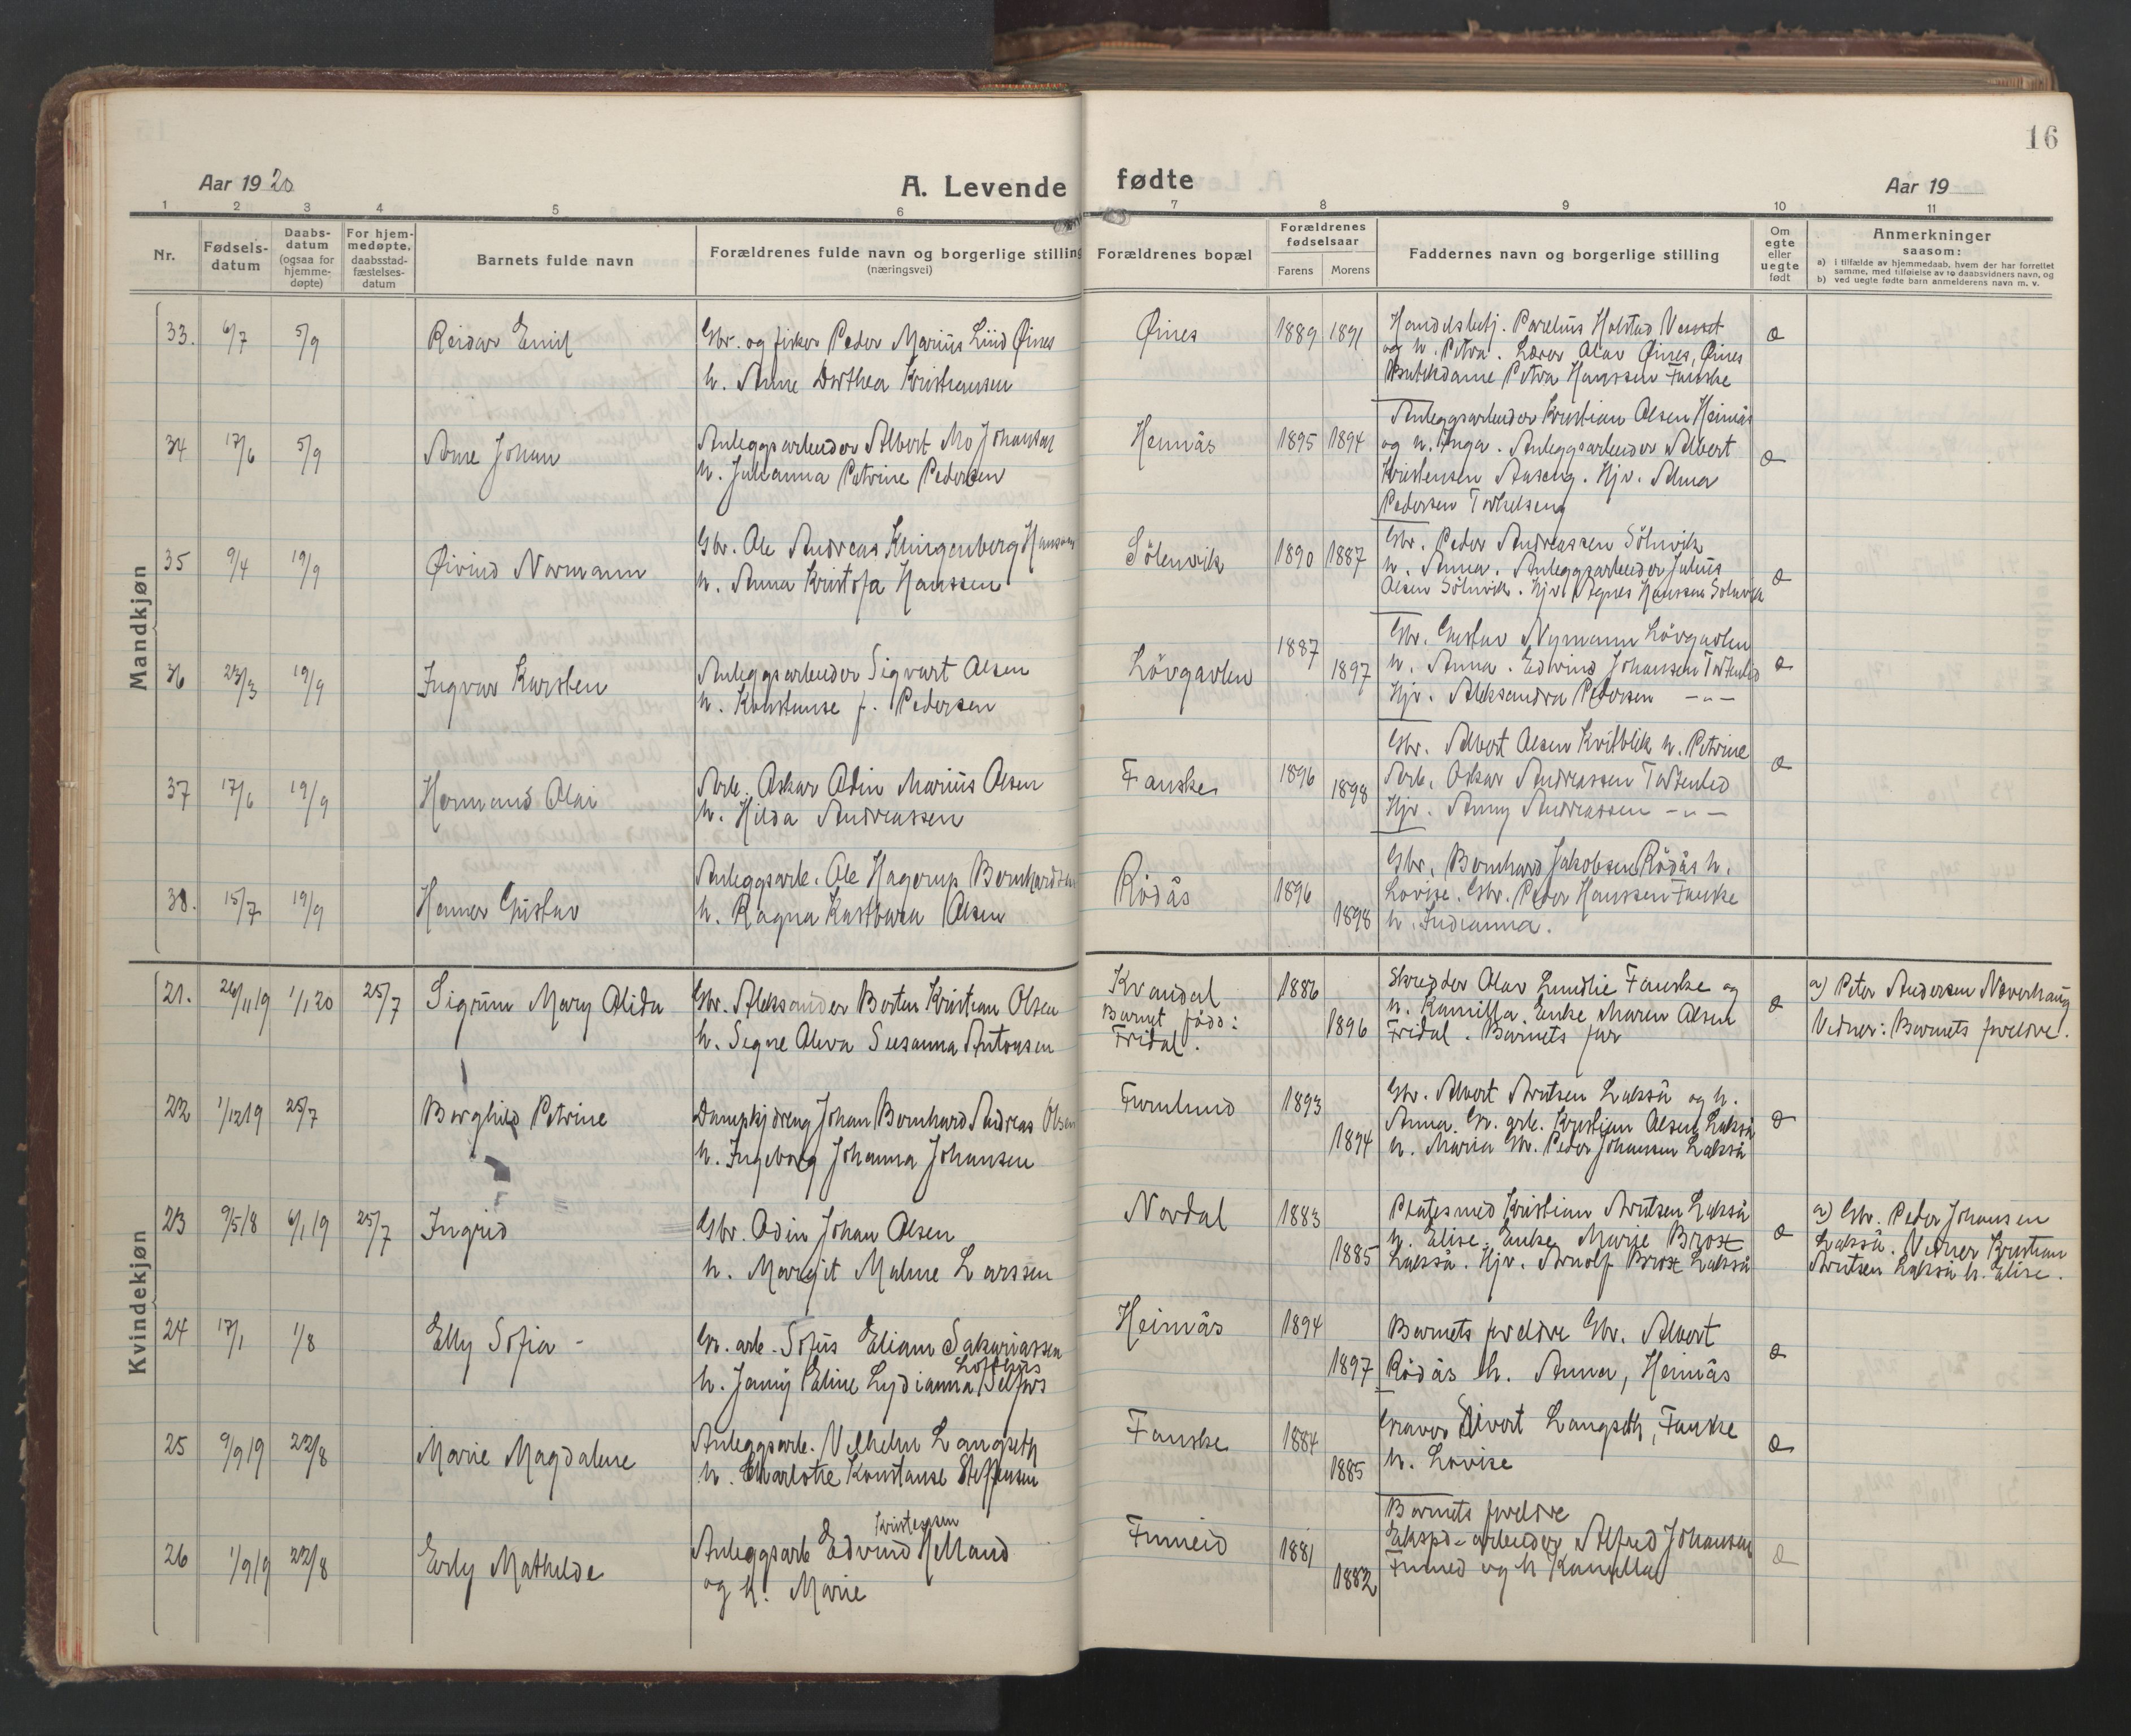 16
Aar 1920
A. Levende fødte
Aar 19
1 2 3 4 5 6 7 8 9 10 11
Nr.
Fødsels-
datum
Daabs-
datum
(ogsaa for
hjemme-
døpte)
For hjem-
medøpte,
daabsstad-
fæstelses-
datum
Barnets fulde navn
Forældrenes fulde navn og borgerlige stilling
(næringsvei)
Forældrenes bopæl
Forældrenes
fødselsaar
Farens Morens
Faddernes navn og borgerlige stilling
Om
egte
eller
uegte
født
Anmerkninger
saasom:
a) i tilfælde av hjemmedaab, hvem der har forrettet
samme, med tilføielse av to daabsvidners navn, og
b) ved uegte fødte barn anmelderens navn m. v.
Mandkjøn
33. 6/7 5/9 Reidar Emil
Gbr. og fisker Peder Marius Lund Øines
h. Anne Dorthea Kristiansen
Øines 1889 1891
Handelsbetj. Parelius Holstad
og h. Petra. Lærer Olav Øines, Øines
Butikdame Petra Hanssen Fauske
34 17/6 5/9 Arne Johan
Anleggsarbeider Albert Mo Johansen
h. Julianna Petrine Pedersen
Heimås 1895 1894
Anleggsarbeider Kristian Olsen Heimås
og h. Inga. Anleggsarbeider Albert
Kristensen Aaseng. Hjv. Alma
Pedersen
35 9/4 19/9 Øivind Normann
Gbr. Ole Andreas Klingenberg Hansen
h. Anna Kristofa Hanssen
Sölenvik 1890 1887
Gbr. Peder Andreassen Sölnvik
h. Anna. Anleggsarbeider Julius
Olsen Sölnvik. Hjv. Agnes Hanssen Solnvik
36 23/3 19/9 Ingvar Karsten
Anleggsarbeider Sigvart Olsen
h. Konstanse f. Pedersen
Lövgavlen 1887 1897
Gbr. Gustav Nymann Lövgavlen
h. Anna. Edvind Johansen
Hjv. Aleksandra Pedersen -"-
37 17/6 19/9 Hermand Olai
Arb. Oskar Odin Marius Olsen
h. Hilda Andreassen
Fauske 1896 1898
Gbr. Albert Olsen Kvitblik h. Petrine
Arb. Oskar Andreassen
Hjv. Anny Andreassen -"-
38. 15/7 19/9 Henner Gustav
Anleggsarb. Ole Hagerup Bernhardsen
h. Ragna Kastbara Olsen
Rödås 1896 1898
Gbr. Bernhard Jakobsen Rödås h.
Lovise. Gbr. Peder Hanssen Fauske
h. Indianna.
Kvindekjøn
21. 26/11 19 1/1 20 25/7 Sigrun Mary Alida
Gbr. Aleksander Borten Kristian Olsen
h. Signe Oleva Susanna Antonsen
Kvandal
Barnet född:
Fridal.
1886 1896
Skredder Olav Lundlie Fauske og
h. Kamilla. Enke Maren Olsen
Fridal. Barnets far
a) Peter Andersen Naverhaug
Vidner: Barnets foreldre.
22 1/12 19 25/7 Borghild Petrine
Dampkjöreng Johan Bernhard Andreas Olsen
h. Ingeborg Johanna Johansen
Furulund 1893 1894
Gbr. Albert Arntsen Lakså og h.
Anna. Gr. arb. Kristian Olsen Lakså
h. Maria Gbr. Peder Johansen Lakså
23 9/5 18 6/1 19 25/7 Ingrid
Gbr. Odin Johan Olsen
h. Margit Malene Larssen
Nordal 1883 1885
Platesmed Kristian Arntsen Lakså
h. Elise. Enke Marie Brose
Lakså. Hjv. Arnolf Brose Lakså
a) Gbr. Peder Johansen
Lakså. Vidner Kristian
Arntsen Lakså h. Elise.
24 17/1 1/8 Elly Sofia -
Gr. arb. Sofus Eliam Sakariassen
h. Jenny Eline Lydianna
Heimås 1894 1897
Barnets foreldre Gbr. Albert
Rödås h. Anna, Heimås
25 9/9 19 22/8 Marie Magdalene
Anleggsarb. Vilhelm Langseth
h. Charlotte Konstanse Steffensen
Fauske 1884 1885
Graver Sivert Langseth, Fauske
h. Lovise
26 1/9 19 22/8 Evly Mathilde
Kristensen
Anleggsarb Edvind Helland
og h. Marie
Finneid 1881 1882
Barnets foreldre
Ekspd-arbeider Alfred Johansen
Finneid og h Kamilla